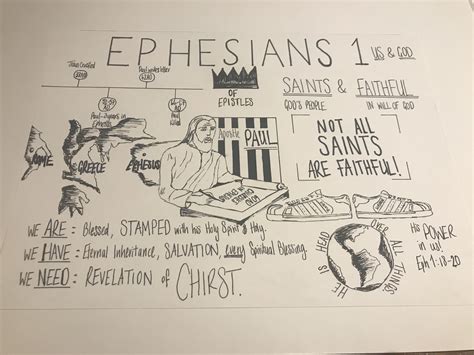 EPHESIANS 1
US & GOD
Jesus Crucified
Paul
OF
EPISTLES
SAINTS & FAITHFUL
GOD'S PEOPLE
IN WILL OF GOD
Paul - 2 years in
Ephesus
Paul
Killed
ROME
GREECE
EPHESUS
Apostle
PAUL
NOT ALL
SAINTS
ARE FAITHFUL!
WE ARE: Blessed, STAMPED with his Holy Spirit
WE HAVE: Eternal Inheritance, SALVATION, every Spiritual Blessing.
WE NEED: Revelation of CHIRST.
HE IS HEAD OVER ALL THINGS.
His POWER
in us!
Eph 1:18-20